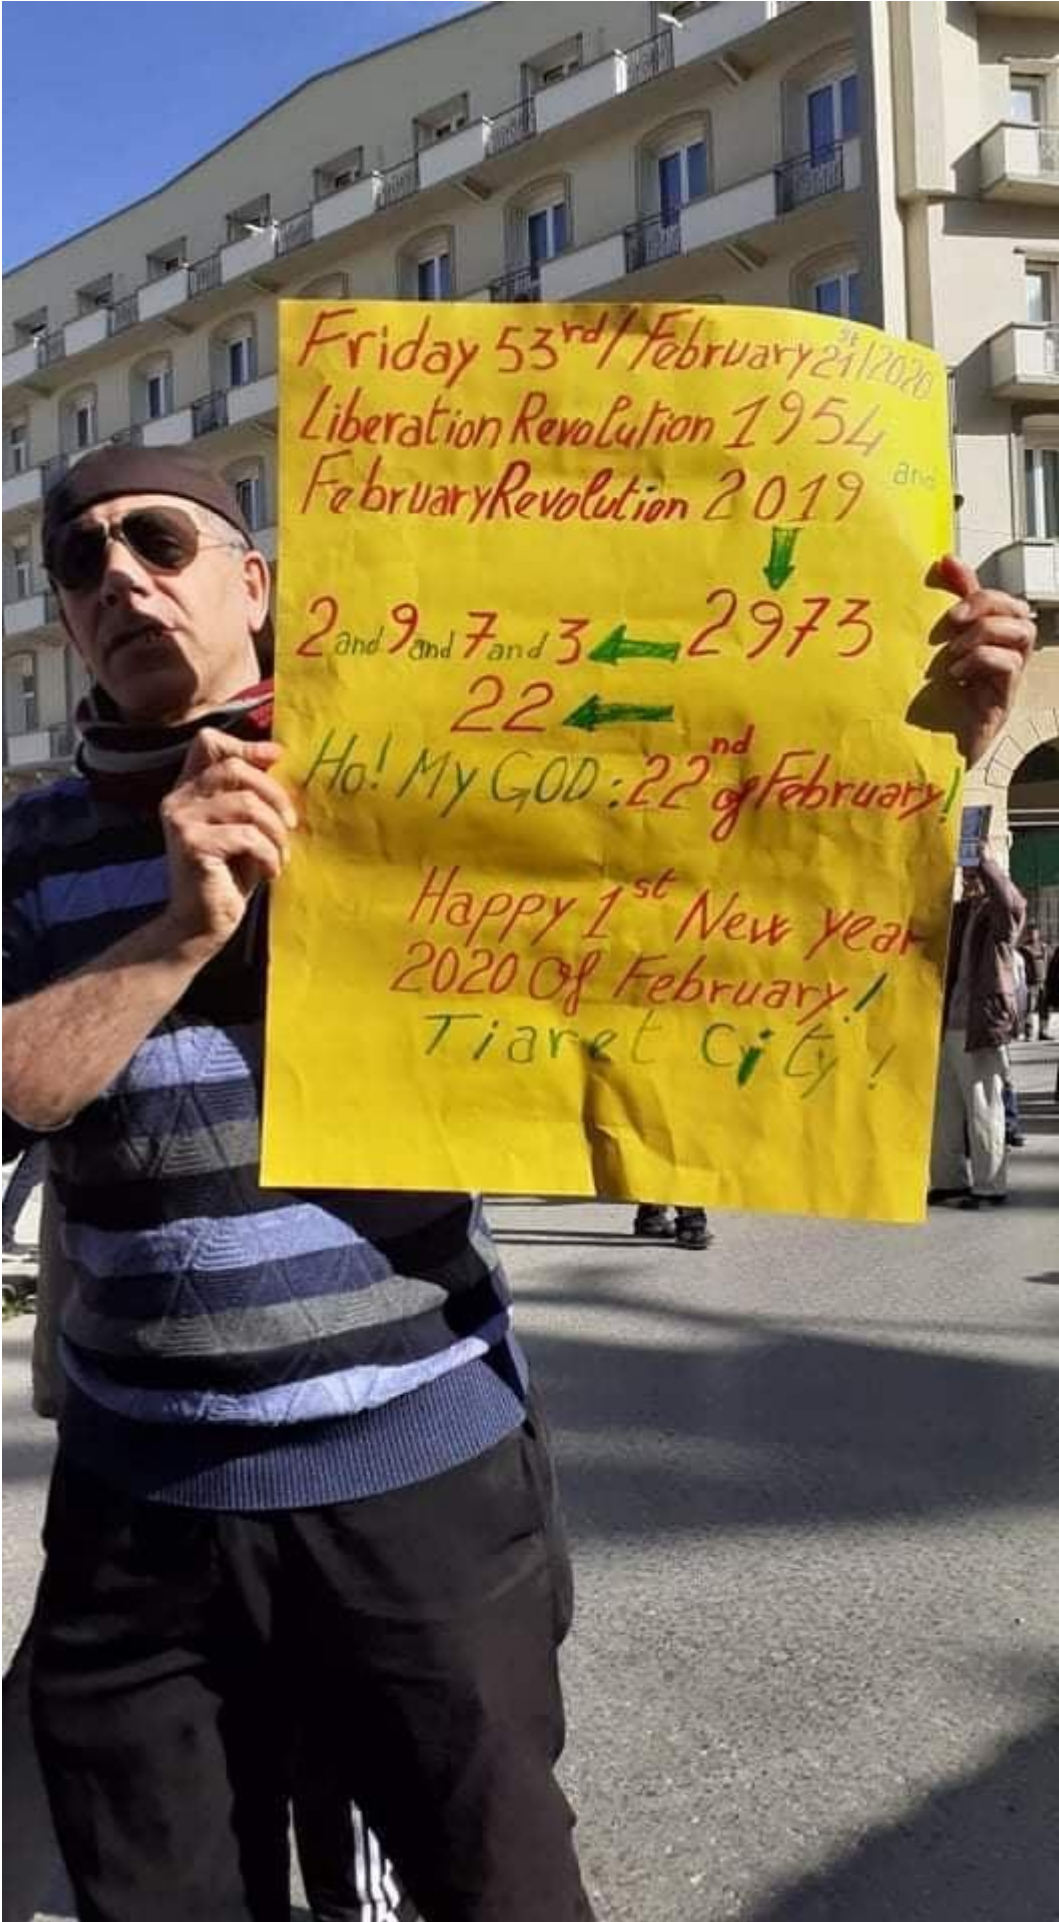 Friday 53rd/February 21st/2020
Liberation Revolution 1954 and
February Revolution 2019
2973
2 and 9 and 7 and 3
22
Ho! My GOD: 22nd of February!
Happy 1st New year
2020 Of February!
Tiaret City!